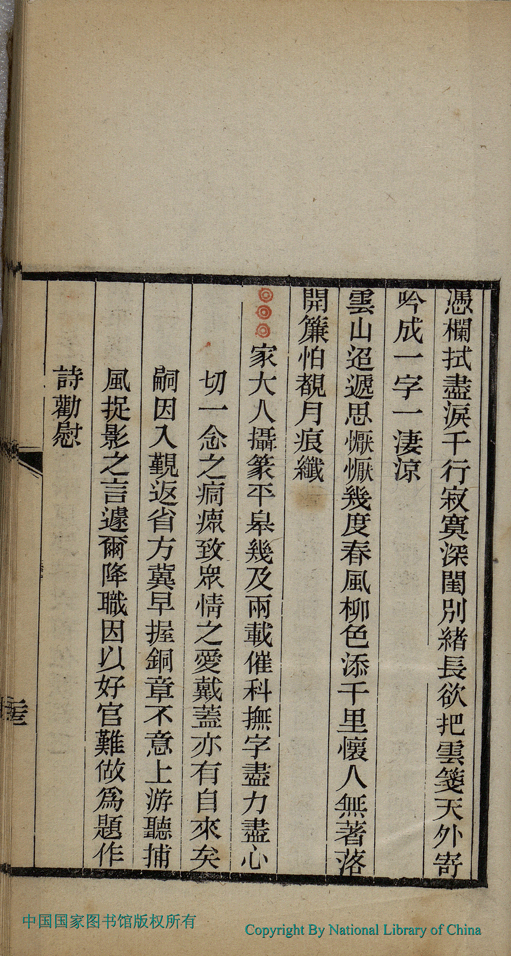 憑欄拭盡淚千行寂寞深閨別緒長欲把雲箋天外寄
吟成一字一淒涼
雲山迢遞思懨懨幾度春風柳色添千里懷人無著落
開簾怕覩月痕纖
家大人攝篆平皋幾及兩載催科撫字盡力盡心
切一念之痌瘝致眾情之愛戴蓋亦有自來矣
嗣因入覲返省方冀早握銅章不意上游聽捕
風捉影之言遽爾降職因以好官難做為題作
詩勸慰
中国国家图书馆版权所有
Copyright By National Library of China